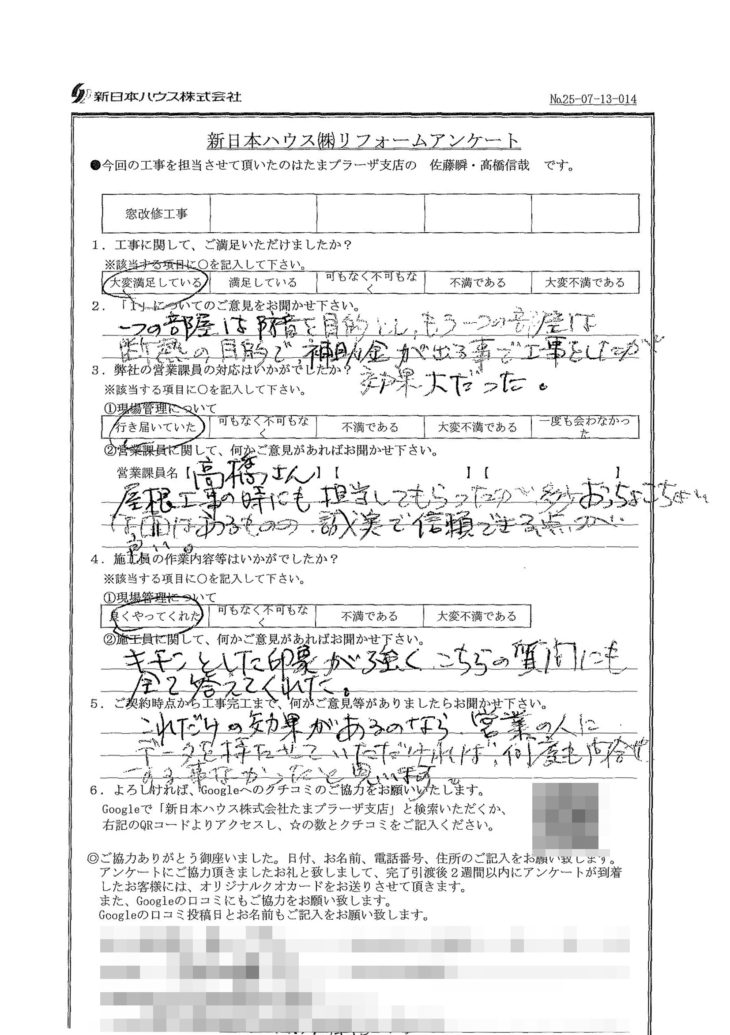 新日本ハウス株式会社
No.25-07-13-014
新日本ハウス㈱リフォームアンケート
●今回の工事を担当させて頂いたのはたまプラーザ支店の 佐藤瞬・髙橋信哉 です。
窓改修工事
1．工事に関して、ご満足いただけましたか？
※該当する項目に○を記入して下さい。
大変満足している 満足している 可もなく不可もなく 不満である 大変不満である
2．「1」についてのご意見をお聞かせ下さい。
一つの部屋は防音を目的にし、もう一つの部屋は
断熱の目的で、補助金が出る事で工事をしたが
効果大だった。
3．弊社の営業課員の対応はいかがでしたか？
※該当する項目に○を記入して下さい。
①現場管理について
行き届いていた 可もなく不可もなく 不満である 大変不満である 一度も会わなかった
②営業課員に関して、何かご意見があればお聞かせ下さい。
営業課員名【高橋さん】【 】【 】
屋根工事の時にも担当してもらったので 少々おっちょこちょい
な面はあるものの、誠実で信頼できる点が
良い。
4．施工員の作業内容等はいかがでしたか？
※該当する項目に○を記入して下さい。
①現場管理について
良くやってくれた 可もなく不可もなく 不満である 大変不満である
②施工員に関して、何かご意見があればお聞かせ下さい。
キチンとした印象が強く こちらの質問にも
全て答えてくれた。
5．ご契約時点から工事完工まで、何かご意見等がありましたらお聞かせ下さい。
これだけの効果があるのなら 営業の人に
データを持たせていただければ、何度も
する事なかったと思います。
6．よろしければ、Googleへのクチコミのご協力をお願いいたします。
Googleで「新日本ハウス株式会社たまプラーザ支店」と検索いただくか、
右記のQRコードよりアクセスし、☆の数とクチコミをご記入ください。
◎ご協力ありがとう御座いました。日付、お名前、電話番号、住所のご記入をお願い致します。
アンケートにご協力頂きましたお礼と致しまして、完了引渡後２週間以内にアンケートが到着
したお客様には、オリジナルクオカードをお送りさせて頂きます。
また、Googleの口コミにもご協力をお願い致します。
Googleの口コミ投稿日とお名前もご記入をお願い致します。